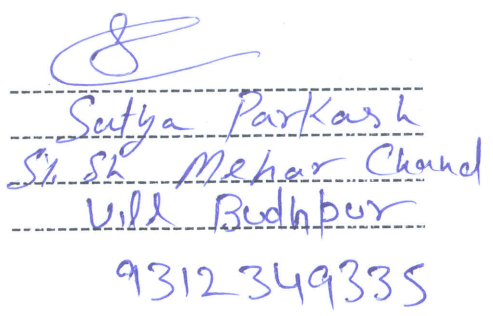 Satya Parkash
S/o Sh Mehar Chand
Vill Budhpur
9312349335